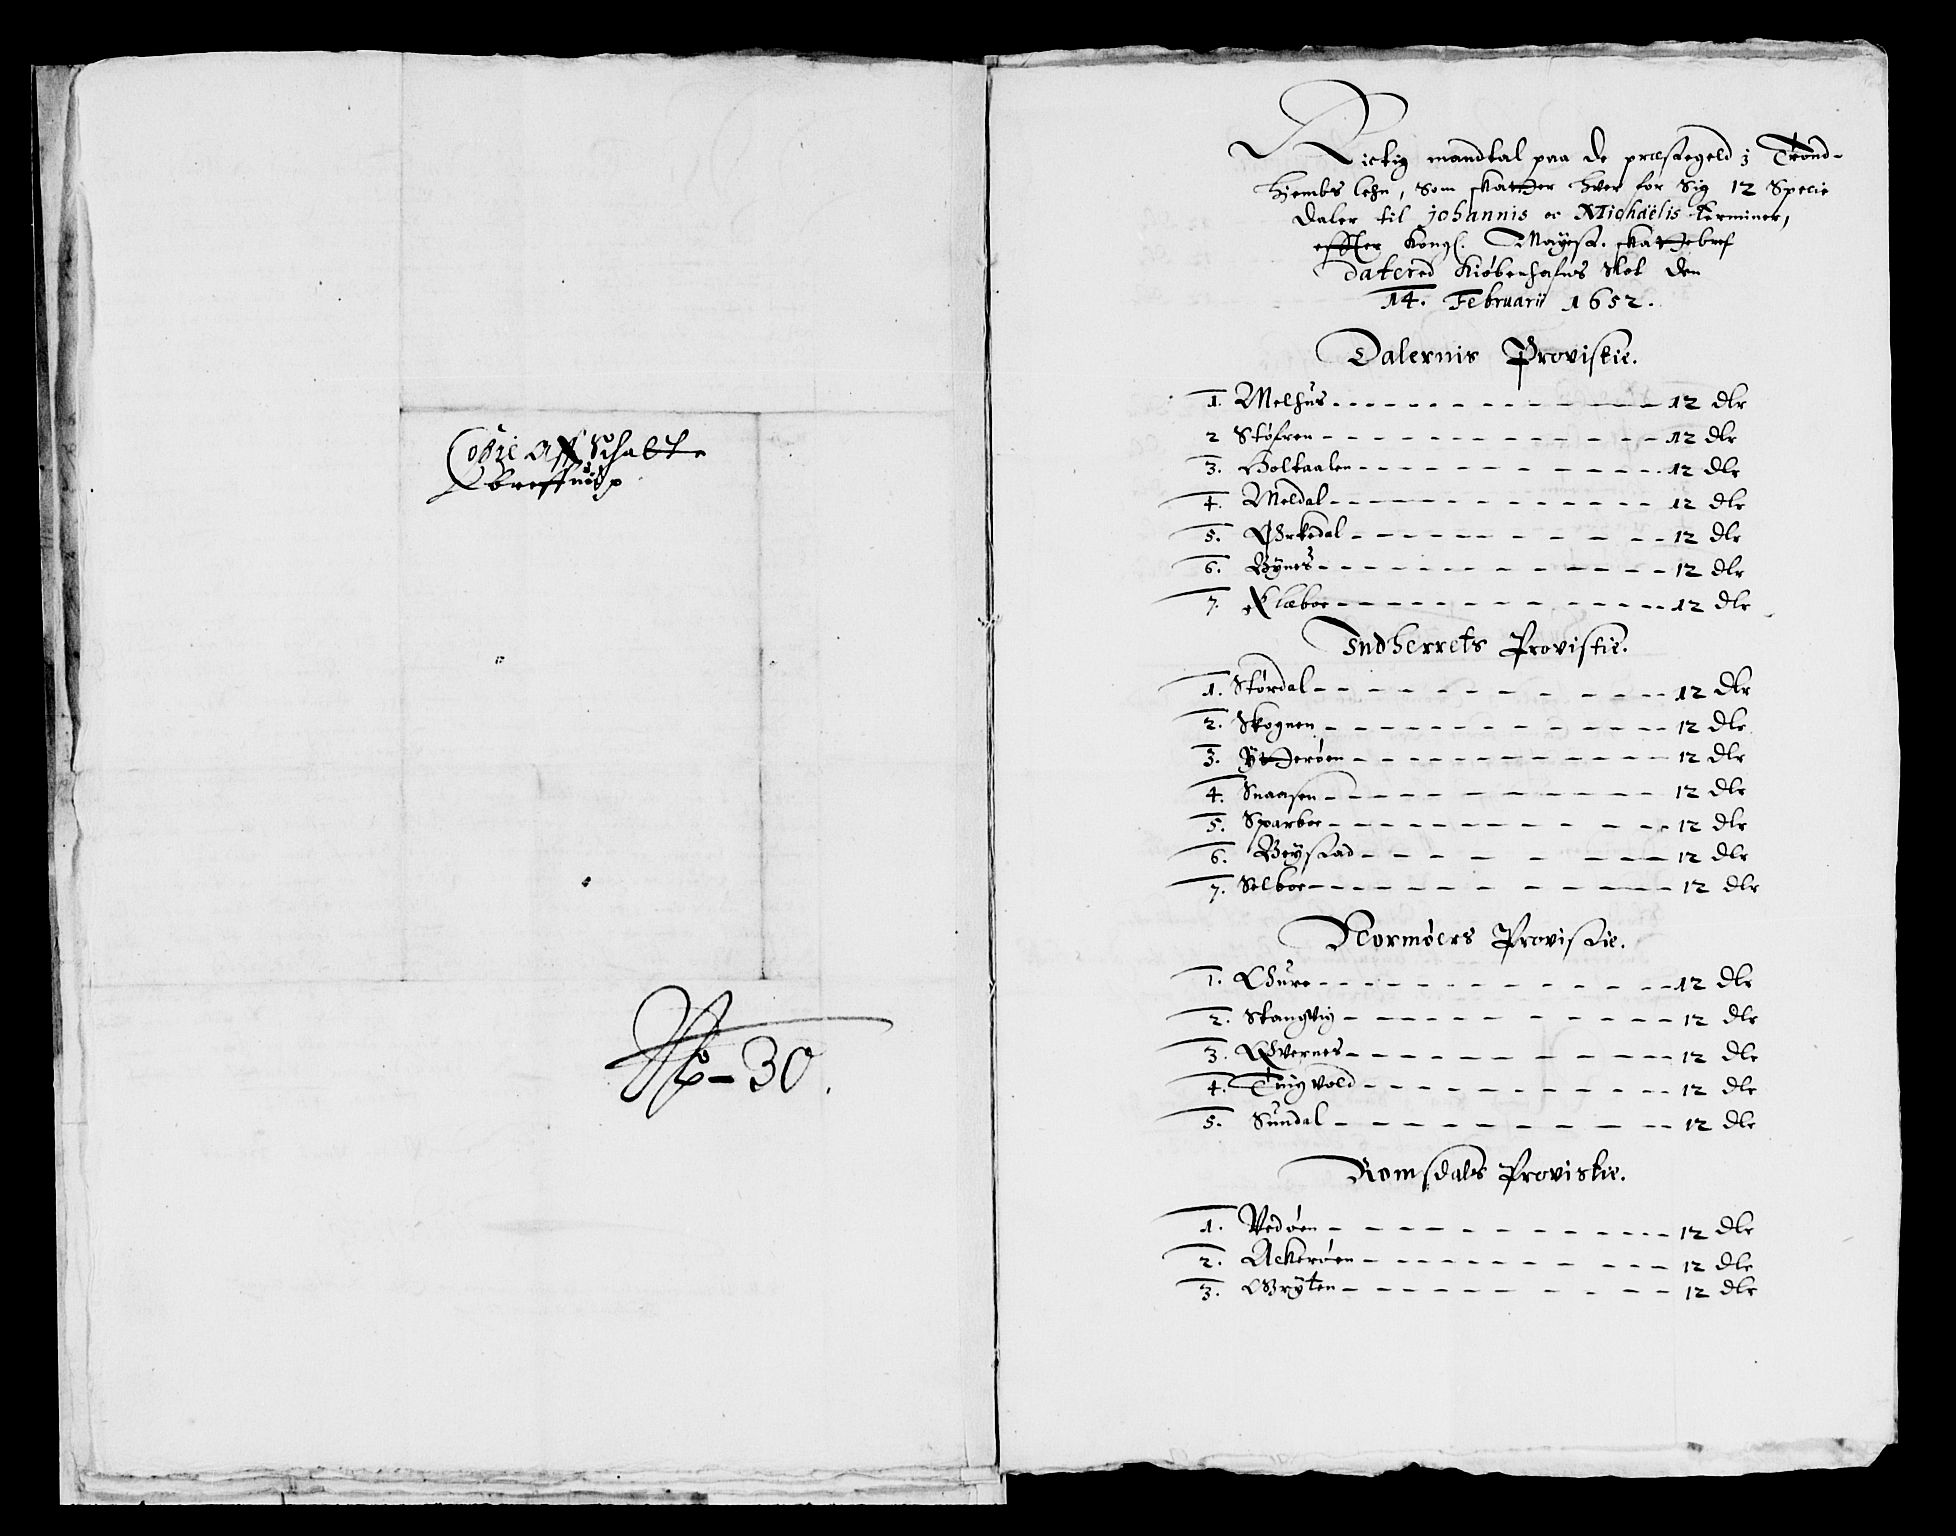 Copie Aff Schatte
breffuet
No - 30.
Rictig mandtal paa de præstegeld i Trond-
hjembs lehn, Som skatter hver for Sig 12 Specie
daler til Johannis oc Michaëlis terminer,
effter Kongl. Mayest. skattebref
datered Kiøbenhafns Slot den
14. Februarii 1652.
Dalernis Provistie.
1. Melhus - - - 12 dlr
2 Støfren - - - 12 dlr
3. Holtaalen - - - 12 dlr
4. Meldal - - - 12 dlr
5. Ørkedal - - - 12 dlr
6. Bynes - - - 12 dlr
7. Klæboe - - - 12 dlr
Indherrets Provistie.
1. Størdal - - - 12 dlr
2. Skognen - - - 12 dlr
3. Ytterøen - - - 12 dlr
4. Snaasen - - - 12 dlr
5. Sparboe - - - 12 dlr
6. Beystad - - - 12 dlr
7. Selboe - - - 12 dlr
Normøers Provistie.
1. Ghure - - - 12 dlr
2. Stangvig - - - 12 dlr
3. Qvernes - - - 12 dlr
4. Tingvold - - - 12 dlr
5. Sundal - - - 12 dlr
Romsdals Provistie.
1. Vedøen - - - 12 dlr
2. Ackerøen - - - 12 dlr
3. Gryten - - - 12 dlr